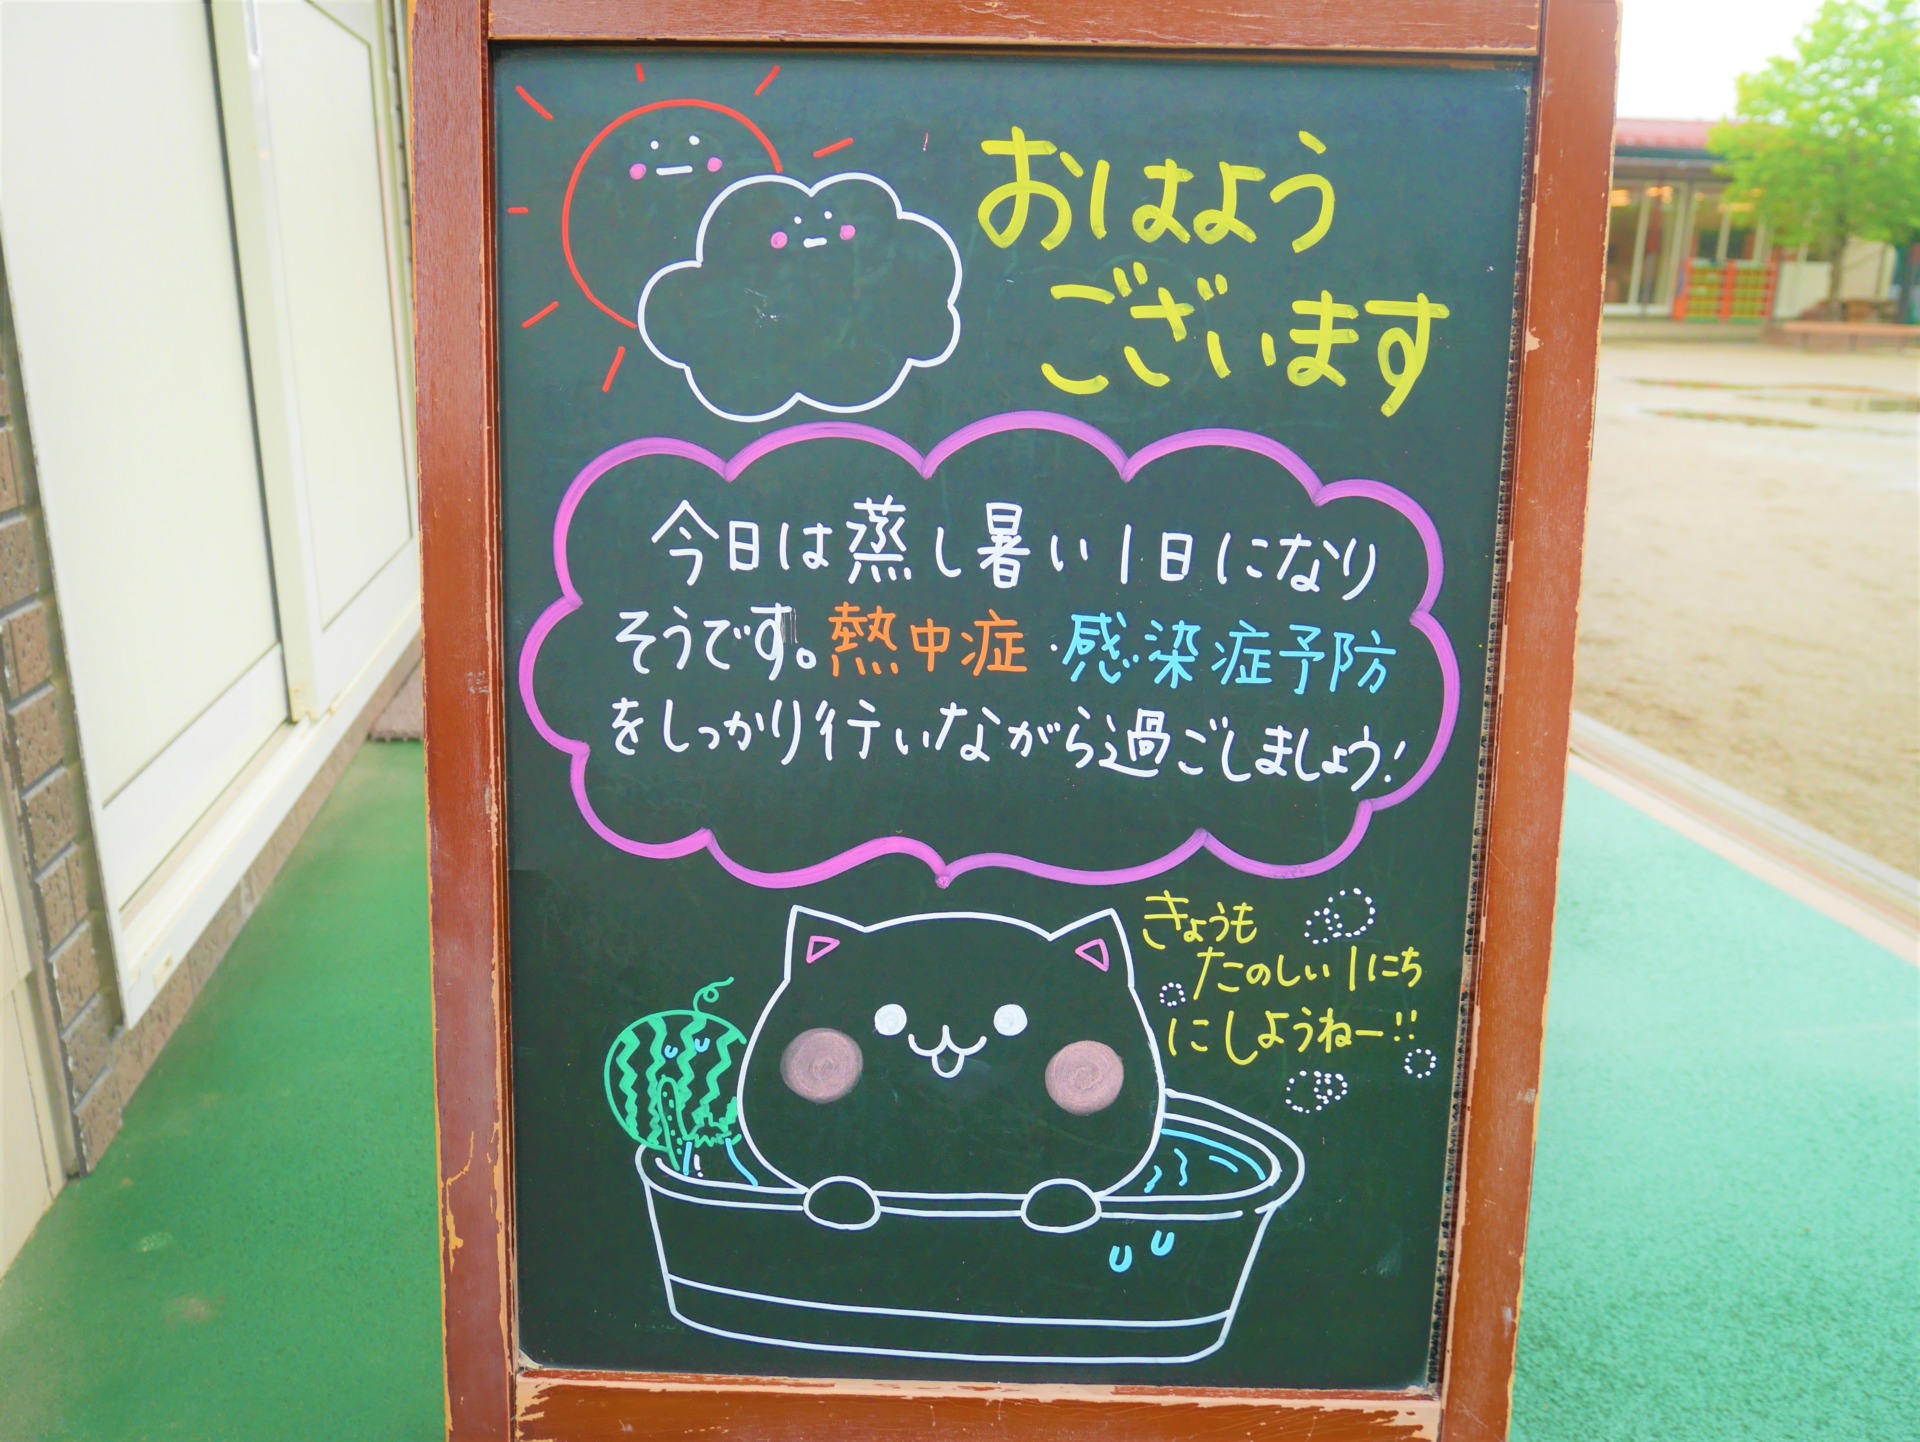 おはよう
ございます
今日は蒸し暑い1日になり
そうです。熱中症・感染症予防
をしっかり行いながら過ごしましょう!
きょうも
たのしい1にち
にしようねー!!